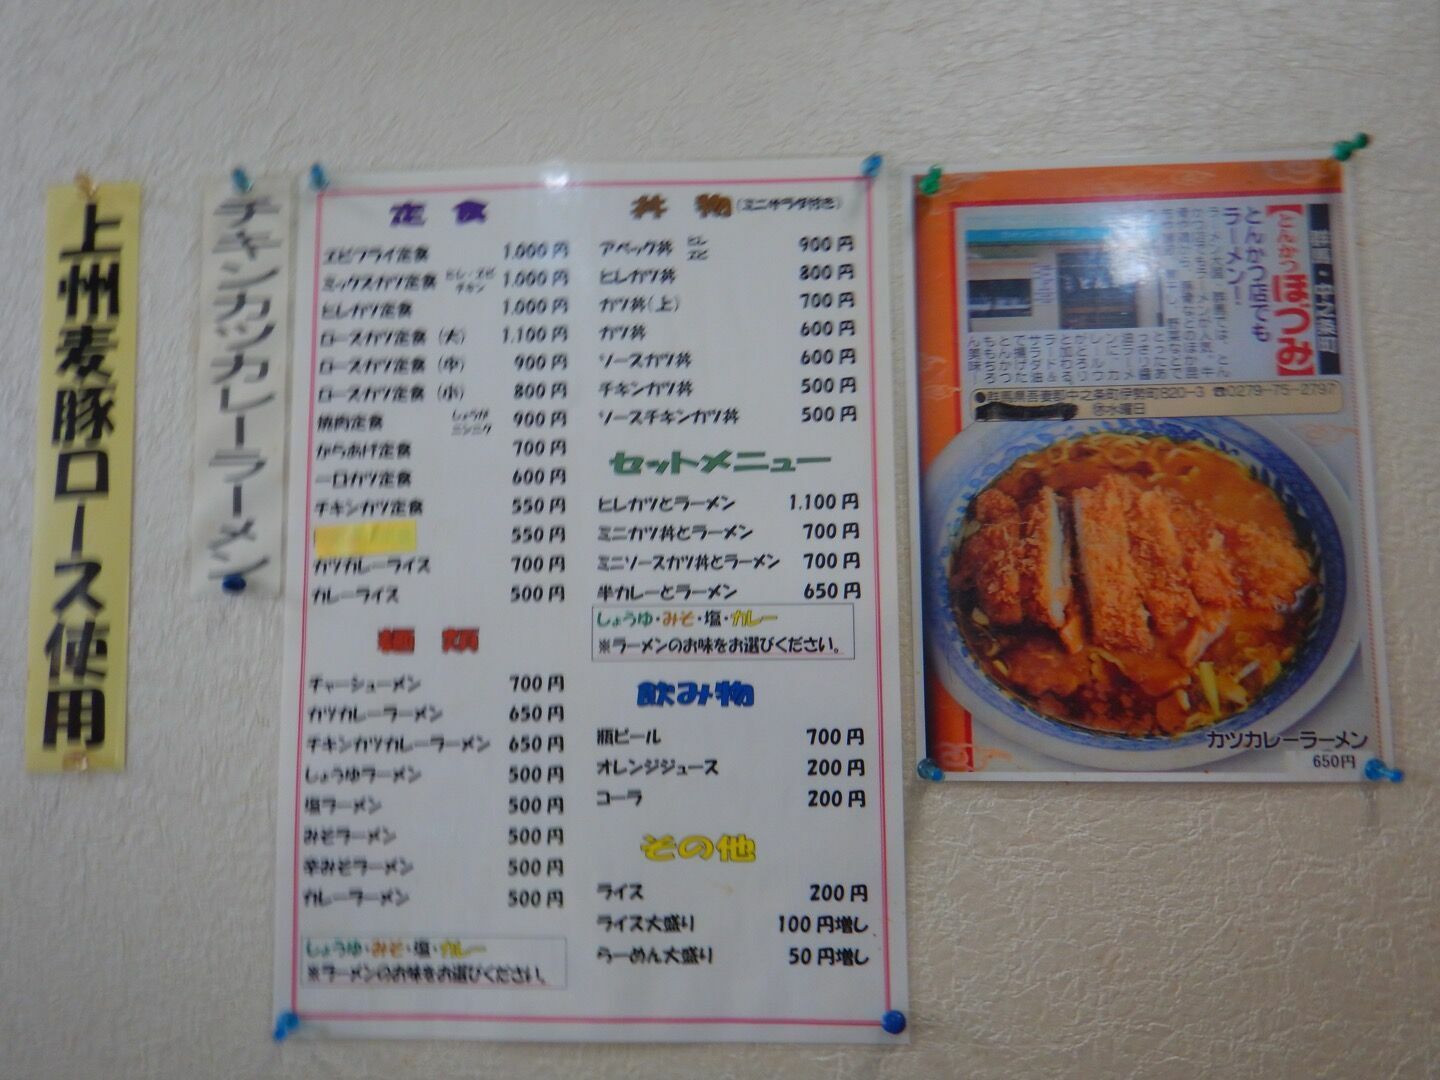 上州麦豚ロース使用
チキンカツカレーラーメン
定食
エビフライ定食 1,000円
ミックスカツ定食 ヒレ・エビ チキン 1,000円
ヒレカツ定食 1,000円
ロースカツ定食(大) 1,100円
ロースカツ定食(中) 900円
ロースカツ定食(小) 800円
焼肉定食 しょうが ニンニク 900円
からあげ定食 700円
一口カツ定食 600円
チキンカツ定食 550円
550円
カツカレーライス 700円
カレーライス 500円
麺類
チャーシューメン 700円
カツカレーラーメン 650円
チキンカツカレーラーメン 650円
しょうゆラーメン 500円
塩ラーメン 500円
みそラーメン 500円
辛みそラーメン 500円
カレーラーメン 500円
しょうゆ・みそ・塩・カレー
※ラーメンのお味をお選びください。
丼物(ミニサラダ付き)
アベック丼 ヒレ エビ 900円
ヒレカツ丼 800円
カツ丼(上) 700円
カツ丼 600円
ソースカツ丼 600円
チキンカツ丼 500円
ソースチキンカツ丼 500円
セットメニュー
ヒレカツとラーメン 1.100円
ミニカツ丼とラーメン 700円
ミニソースカツ丼とラーメン 700円
半カレーとラーメン 650円
しょうゆ・みそ・塩・カレー
※ラーメンのお味をお選びください。
飲み物
瓶ビール 700円
オレンジジュース 200円
コーラ 200円
その他
ライス 200円
ライス大盛り 100円増し
らーめん大盛り 50円増し
群馬・中之条町
【とんかつ ほづみ】
とんかつ店でも
ラーメン!
●群馬県吾妻郡中之条町伊勢町820-3 ☎0279-75-2797
㊡水曜日
カツカレーラーメン
650円